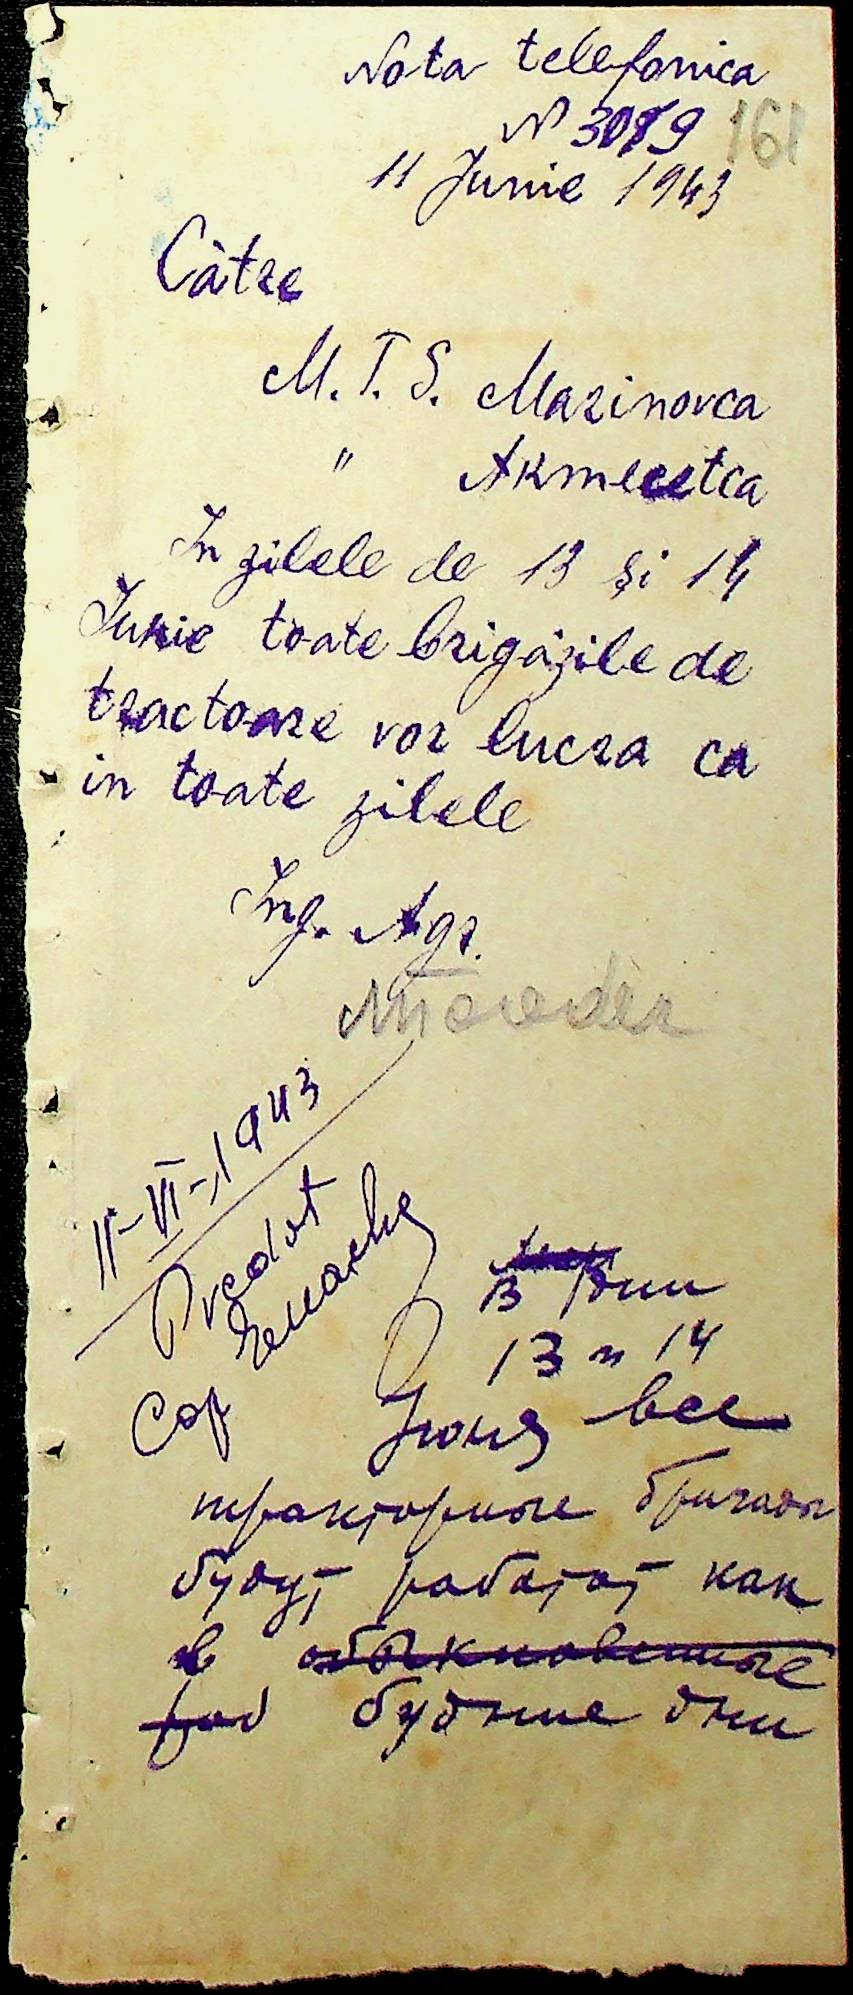 Nota telefonica
N 3089 161
11 Junie 1943
Către
M. T. S. Marinovca
" Akmecetca
In zilele de 13 și 14
Junie toate brigăzile de
tractoare vor lucra ca
in toate zilele
Ing. Agr.
11-VI-1943
Predat
В дни
13 и 14
Июня все
тракторные бригады
будут работат как
в обыкновенные
раб будние дни